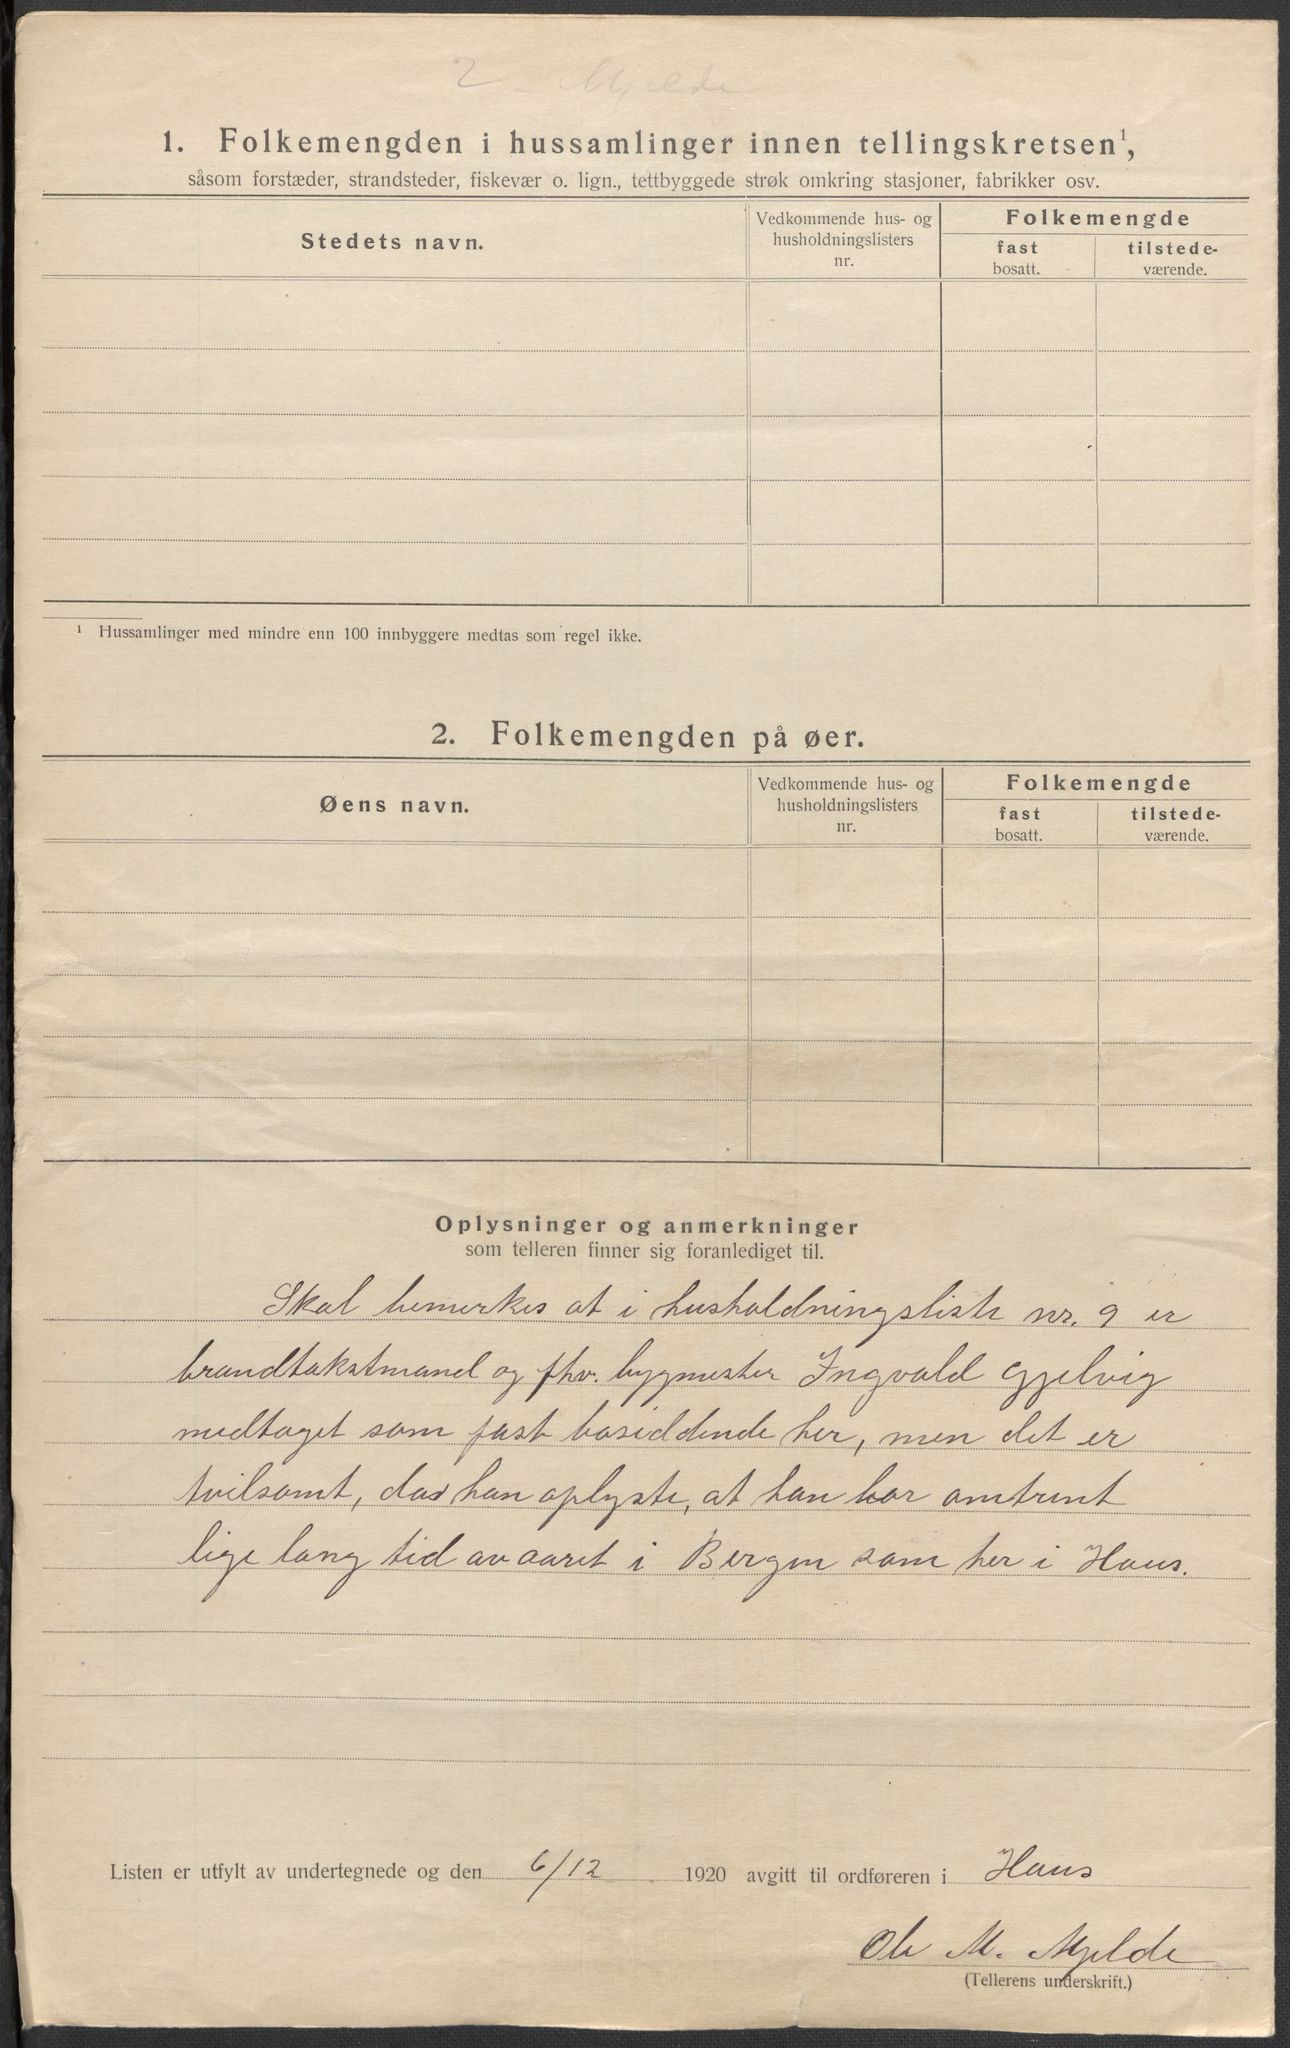 2 Mjelde
1. Folkemengden i hussamlinger innen tellingskretsen¹,
såsom forstæder, strandsteder, fiskevær o. lign., tettbyggede strøk omkring stasjoner, fabrikker osv.
Stedets navn.
Vedkommende hus- og
husholdningslisters
nr.
Folkemengde
fast
bosatt.
tilstede-
værende.
¹ Hussamlinger med mindre enn 100 innbyggere medtas som regel ikke.
2. Folkemengden på øer.
Øens navn.
Vedkommende hus- og
husholdningslisters
nr.
Folkemengde
fast
bosatt.
tilstede-
værende.
Oplysninger og anmerkninger
som telleren finner sig foranlediget til.
Skal bemerkes at i husholdningsliste nr. 9 er
brandtakstmand og fhv. bygmester Ingvald Gjelvig
medtaget som fast bosiddende her, men det er
tvilsomt, da han oplyste, at han bor omtrent
lige lang tid av aaret i Bergen som her i Haus.
Listen er utfylt av undertegnede og den 6/12 1920 avgitt til ordføreren i Haus
Ole M. Mjelde
(Tellerens underskrift.)